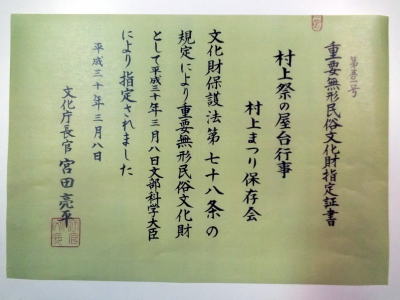 重要無形民俗文化財指定証書
村上祭の屋台行事
村上まつり保存会
文化財保護法第七十八条の
規定により重要無形民俗文化財
として平成三十年三月八日文部科学大臣
により指定されました
平成三十年三月八日
文化庁長官 宮田亮平